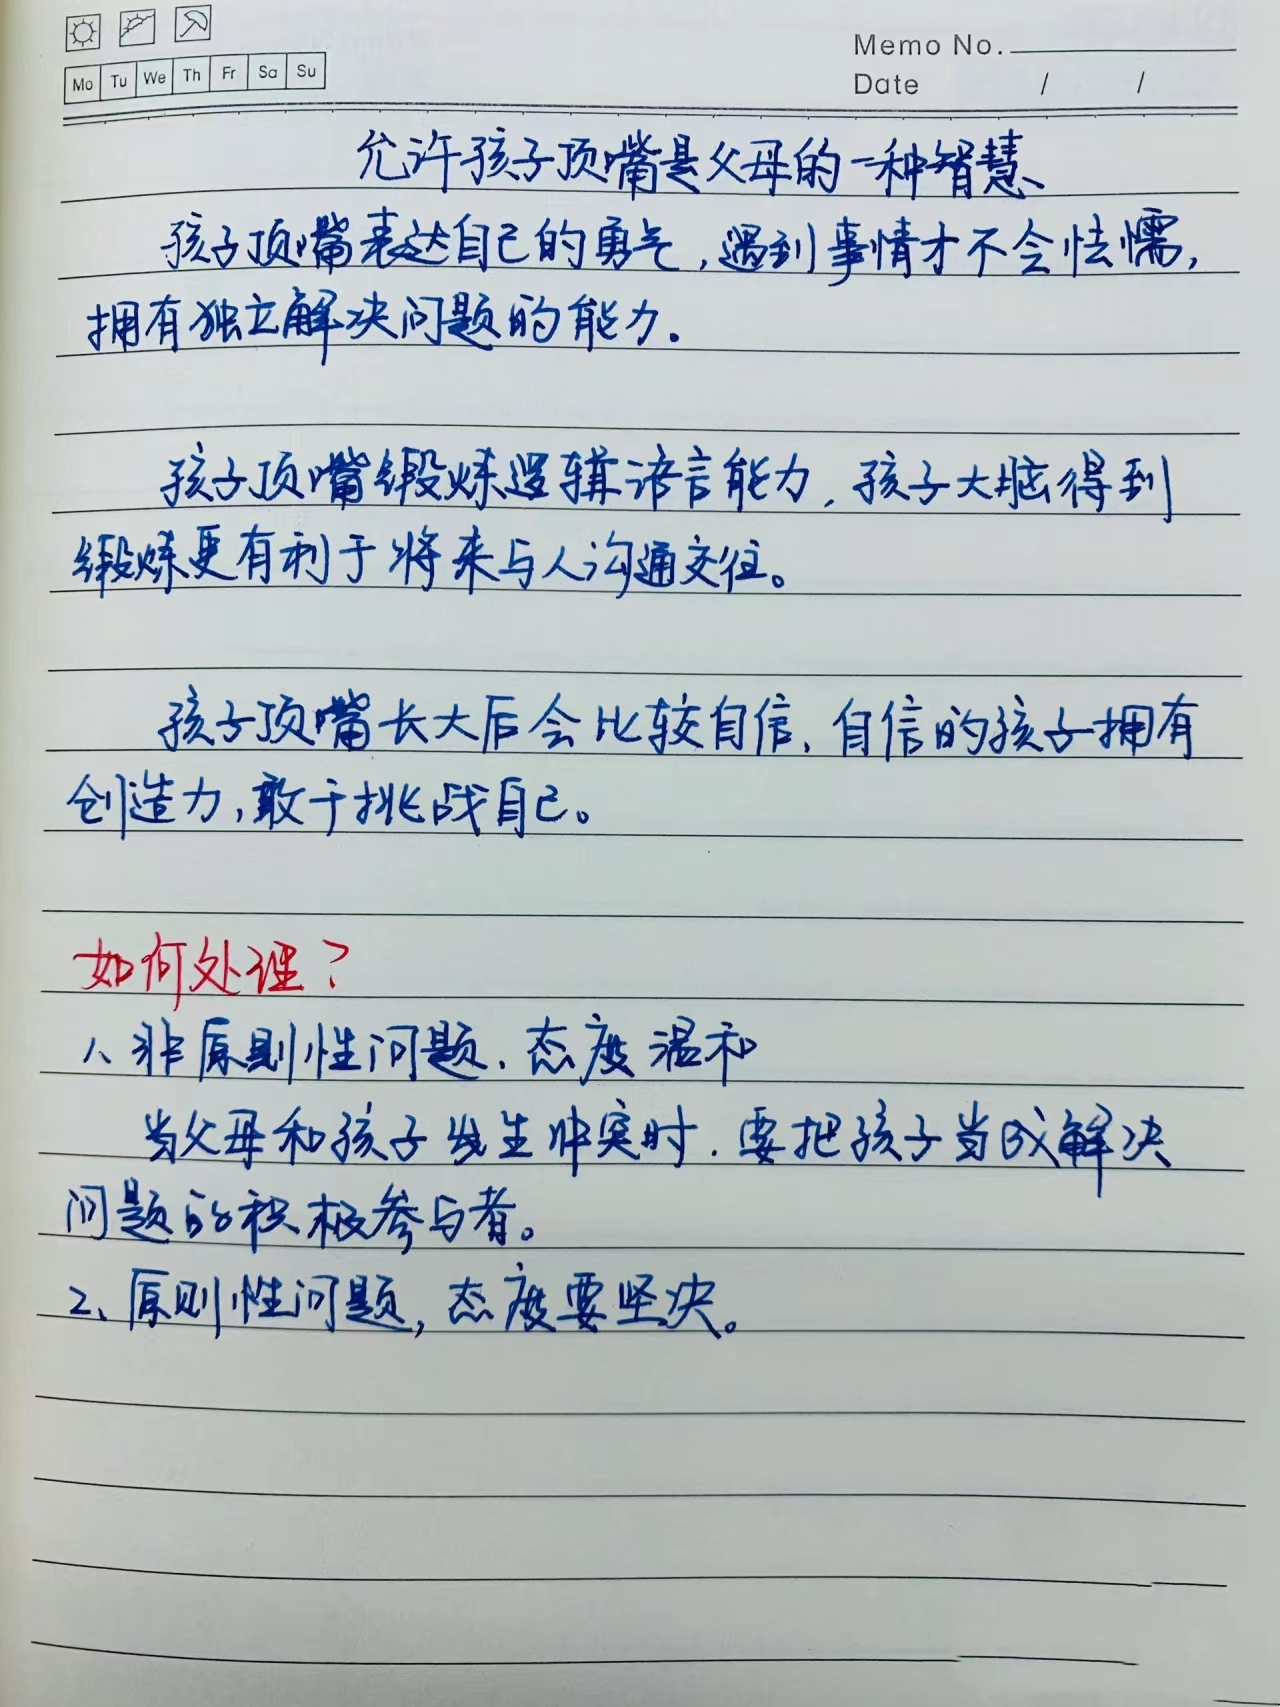 Mo Tu We Th Fr Sa Su
Memo No.
Date / /
允许孩子顶嘴是父母的一种智慧、
孩子顶嘴表达自己的勇气,遇到事情才不会怯懦,
拥有独立解决问题的能力.
孩子顶嘴锻炼逻辑语言能力,孩子大脑得到
锻炼更有利于将来与人沟通交往。
孩子顶嘴长大后会比较自信,自信的孩子拥有
创造力,敢于挑战自己。
如何处理?
1、非原则性问题,态度温和
当父母和孩子发生冲突时,要把孩子当成解决
问题的积极参与者。
2、原则性问题,态度要坚决。